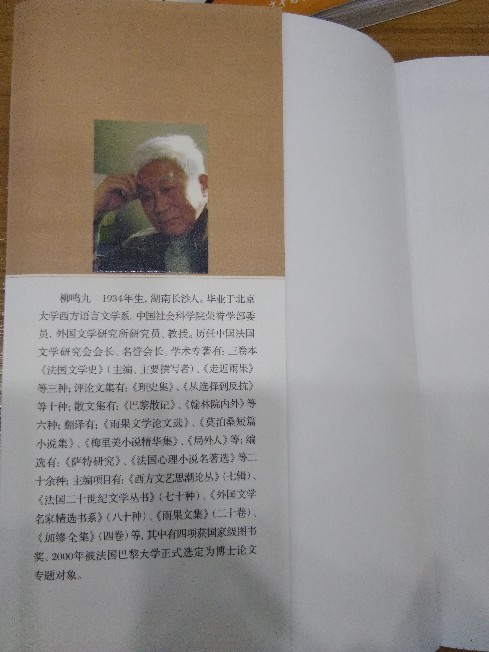 柳鸣九 1934年生，湖南长沙人。毕业于北京
大学西方语言文学系，中国社会科学院荣誉学部委
员，外国文学研究所研究员、教授。历任中国法国
文学研究会会长、名誉会长，学术专著有：三卷本
《法国文学史》（主编、主要撰写者）、《走近雨果》
等三种；评论文集有：《理史集》、《从选择到反抗》
等十种；散文集有：《巴黎散记》、《翰林院内外》等
六种；翻译有：《雨果文学论文选》、《莫泊桑短篇
小说集》、《梅里美小说精华集》、《局外人》等；编
选有：《萨特研究》、《法国心理小说名著选》等二
十余种；主编项目有：《西方文艺思潮论丛》（七辑）、
《法国二十世纪文学丛书》（七十种）、《外国文学
名家精选书系》（八十种）、《雨果文集》（二十卷）、
《加缪全集》（四卷）等，其中有四项获国家级图书
奖。2000年被法国巴黎大学正式选定为博士论文
专题对象。